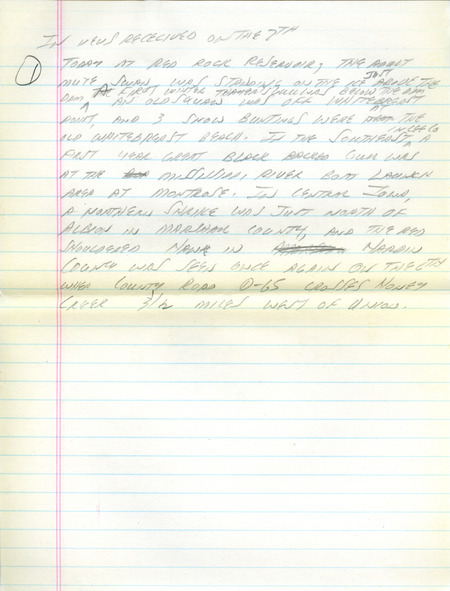 IN NEWS RECEIVED ON THE 7TH
1 TODAY AT RED ROCK RESERVOIR, THE ADULT
JUST
MUTE SWAN WAS STANDING ON THE ICE ABOVE THE
DAM, A FIRST WINTER THAYER'S GULL WAS BELOW THE DAM
AN OLDSQUAW WAS OFF WHITEBREAST
POINT, AND 3 SNOW BUNTINGS WERE AT THE
OLD WHITEBREAST BEACH. IN THE SOUTHEAST A
LEE CO
FIRST YEAR GREAT BLACK BACKED GULL WAS
AT THE MISSISSIPPI RIVER BOAT LAUNCH
AREA AT MONTROSE. IN CENTRAL IOWA,
A NORTHERN SHRIKE WAS JUST NORTH OF
ALBION IN MARSHALL COUNTY, AND THE RED
SHOULDERED HAWK IN HARDIN
COUNTY WAS SEEN ONCE AGAIN ON THE 6TH
WHERE COUNTY ROAD D-65 CROSSES HONEY
CREEK 3 1/2 MILES WEST OF UNION.